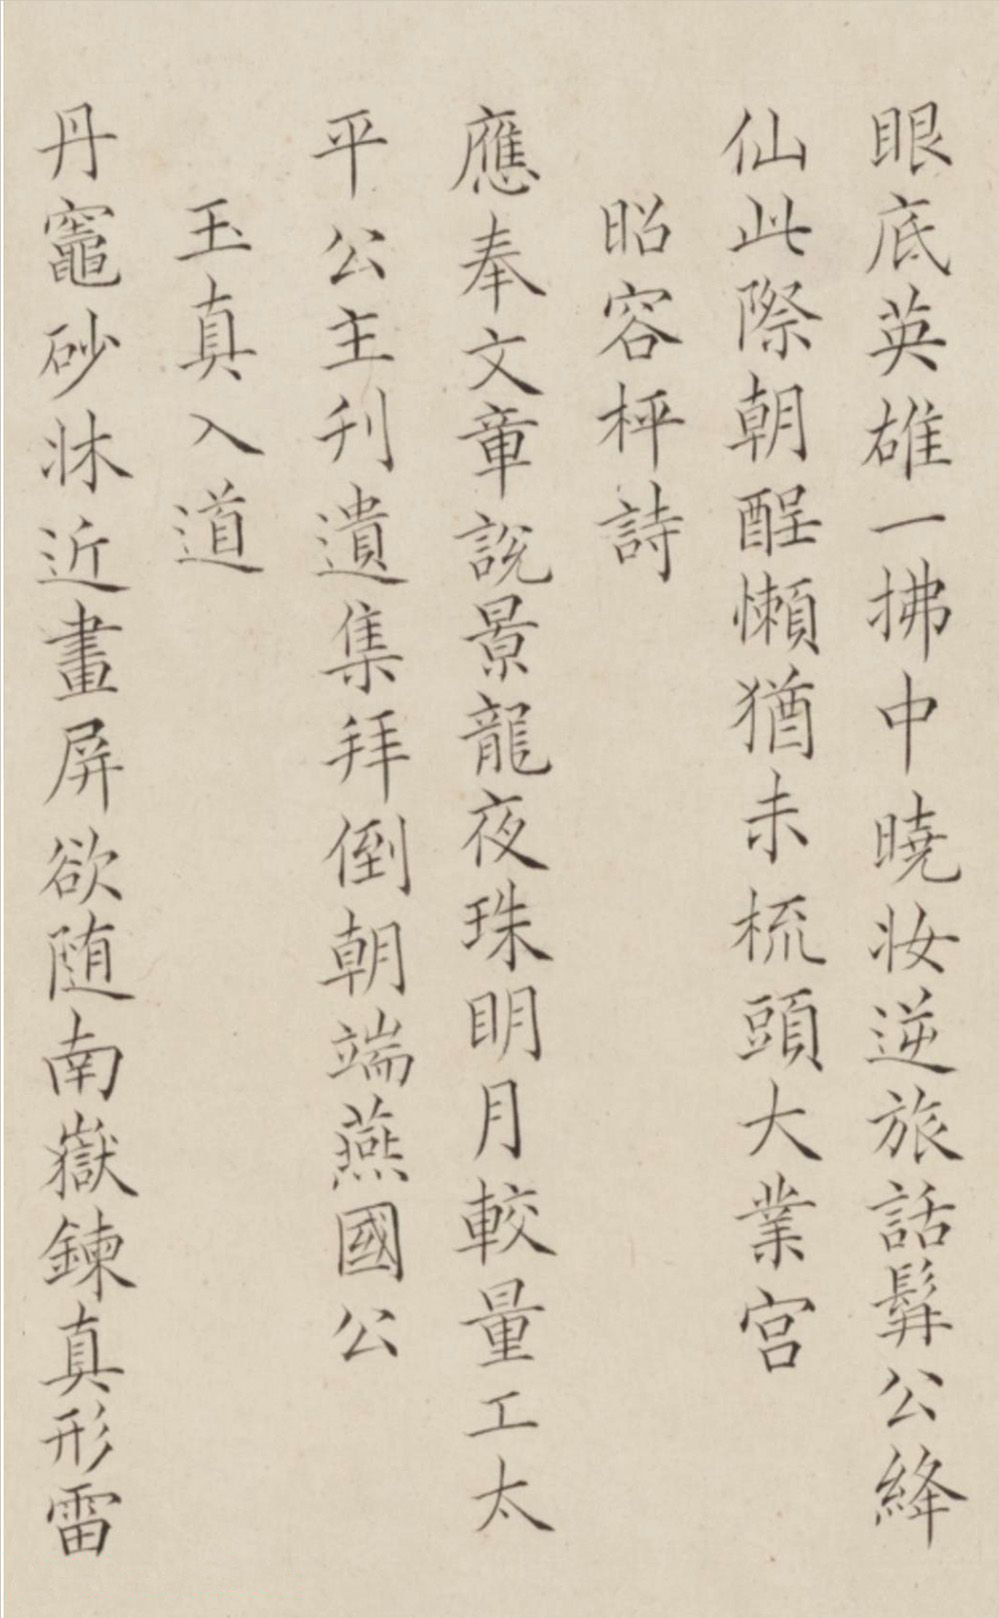 眼底英雄一拂中曉妝逆旅話髯公絳
仙此際朝酲懶猶未梳頭大業宮
昭容枰詩
應奉文章說景龍夜珠明月較量工太
平公主刋遺集拜倒朝端燕國公
玉真入道
丹竈砂牀近畫屏欲随南嶽鍊真形雷